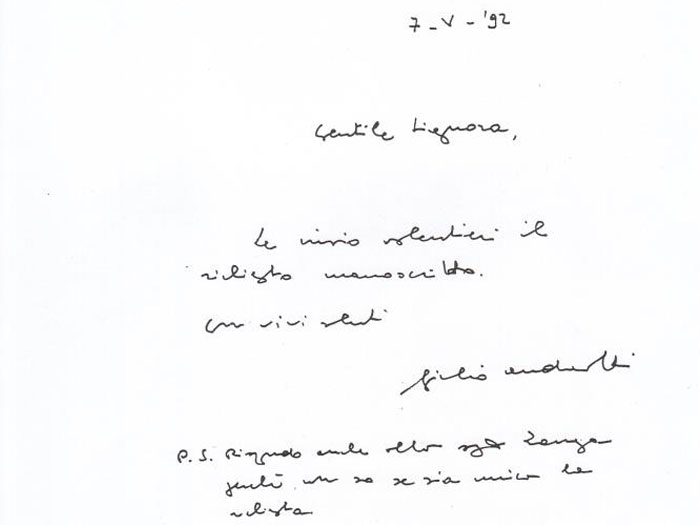 7-V-'92
Gentile Signora,
Le invio volentieri il
richiesto manoscritto.
con vivi saluti
Giulio Andreotti
P.S. Rispondo anche alla
perché non so se sia unica la
richiesta